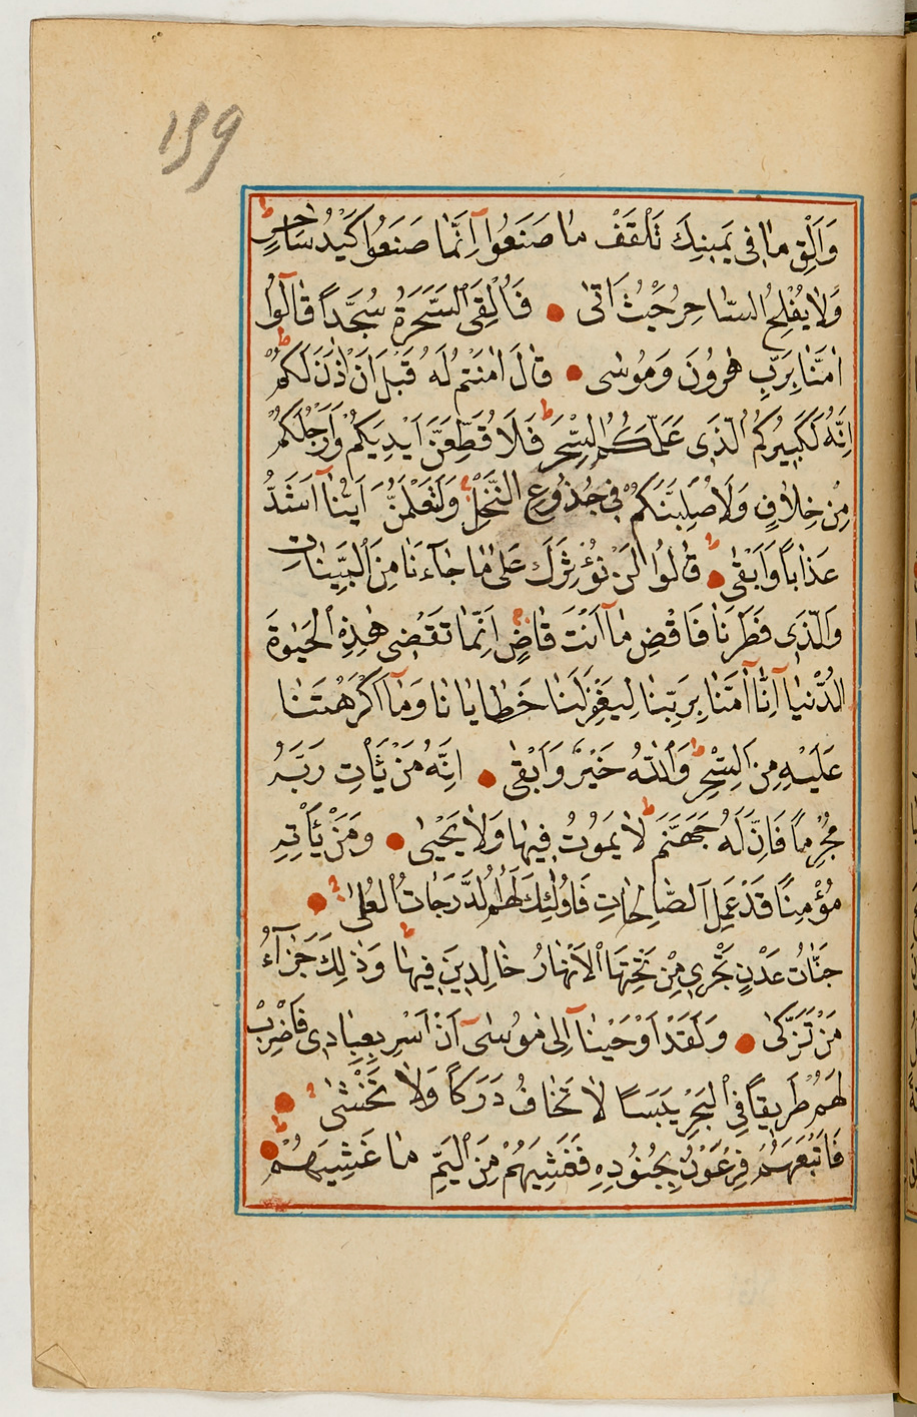 139
وَاَلْقِ مَا فِى يَمِينِكَ تَلْقَفْ مَا صَنَعُوا اِنَّمَا صَنَعُوا كَيْدُ سَاحِرٍ ط
وَلَا يُفْلِحُ السَّاحِرُ حَيْثُ اَتٰى فَاُلْقِىَ السَّحَرَةُ سُجَّداً قَالُوا
اٰمَنَّا بِرَبِّ هٰرُونَ وَمُوسٰى قَالَ اٰمَنْتُمْ لَهُ قَبْلَ اَنْ اٰذَنَ لَكُمْ ط
اِنَّهُ لَكَبِيرُكُمُ الَّذِى عَلَّمَكُمُ السِّحْرَ ط فَلَاُقَطِّعَنَّ اَيْدِيَكُمْ وَاَرْجُلَكُمْ
مِنْ خِلَافٍ وَلَاُصَلِّبَنَّكُمْ فِى جُذُوعِ النَّخْلِ وَلَتَعْلَمُنَّ اَيُّنَا اَشَدُّ
عَذَاباً وَاَبْقٰى قَالُوا لَنْ نُؤْثِرَكَ عَلٰى مَا جَاءَنَا مِنَ الْبَيِّنَاتِ
وَالَّذِى فَطَرَنَا فَاقْضِ مَا اَنْتَ قَاضٍ ط اِنَّمَا تَقْضِى هٰذِهِ الْحَيٰوةَ
الدُّنْيَا اِنَّا اٰمَنَّا بِرَبِّنَا لِيَغْفِرَ لَنَا خَطَايَانَا وَمَا اَكْرَهْتَنَا
عَلَيْهِ مِنَ السِّحْرِ ط وَاللّٰهُ خَيْرٌ وَاَبْقٰى اِنَّهُ مَنْ يَأْتِ رَبَّهُ
مُجْرِماً فَاِنَّ لَهُ جَهَنَّمَ ط لَا يَمُوتُ فِيهَا وَلَا يَحْيٰى وَمَنْ يَأْتِهِ
مُؤْمِنًا قَدْ عَمِلَ الصَّالِحَاتِ فَاُولٰئِكَ لَهُمُ الدَّرَجَاتُ الْعُلٰى
جَنَّاتُ عَدْنٍ تَجْرِى مِنْ تَحْتِهَا الْاَنْهَارُ خَالِدِينَ فِيهَا ط وَذٰلِكَ جَزَآءُ
مَنْ تَزَكّٰى وَلَقَدْ اَوْحَيْنَا اِلٰى مُوسٰى اَنْ اَسْرِ بِعِبَادِى فَاضْرِبْ
لَهُمْ طَرِيقاً فِى الْبَحْرِ يَبَسًا لَا تَخَافُ دَرَكاً وَلَا تَخْشٰى
فَاَتْبَعَهُمْ فِرْعَوْنُ بِجُنُودِهِ فَغَشِيَهُمْ مِنَ الْيَمِّ مَا غَشِيَهُمْ ط